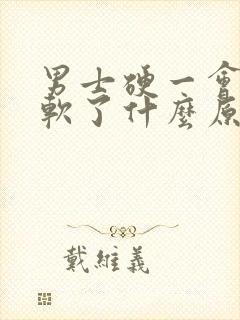 男士硬一會
軟了什麼原
戴維義